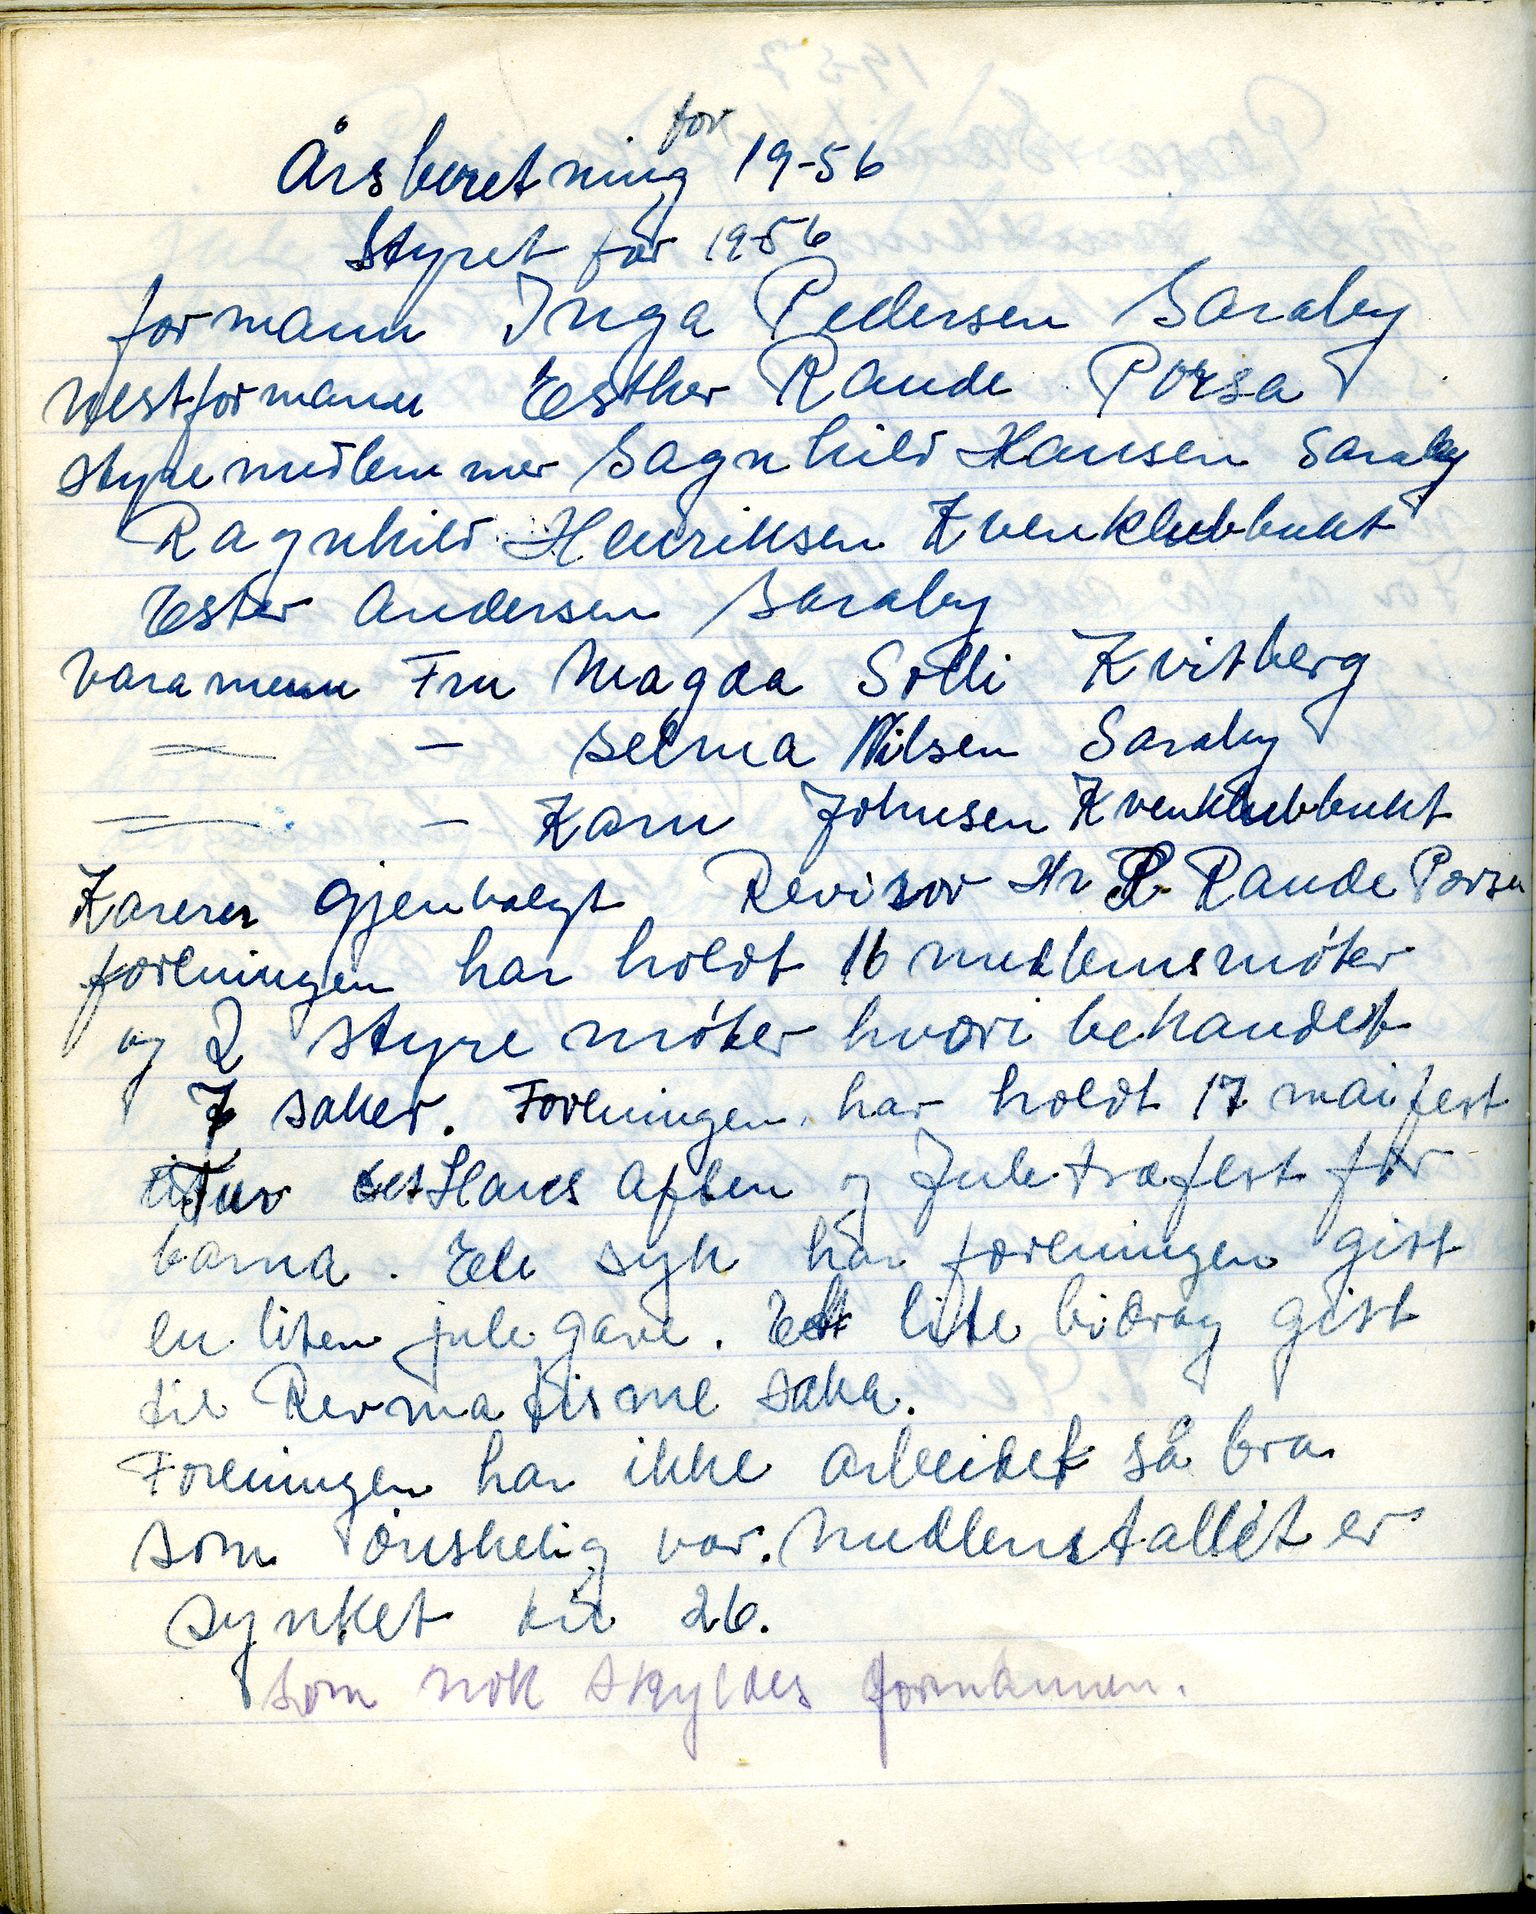 Årsberetning for 19-56
Styret for 1956
formann Inga Pedersen Saraby
nestformann Esther Rande Porsa
styremedlemmer Sagnhild Hansen Saraby
Ragnhild Henriksen Kvenklubbukt
Ester Andersen Saraby
varamenn Fru Magda Solli Kvitberg
= - Selma Nilsen Saraby
= - Karn Johnsen Kvenklubbukt
Kaserer gjenvalgt Revisor Hr R. Rande Porsa
foreningen har holdt 16 medlemsmøter
og 2 styremøter hvori behandelt
7 saker. Foreningen har holdt 17 maifest
Tur Hans Aften og Juletræfest for
barna. Ele syk har foreningen gist
en liten julegave. Ett lite bidrag gist
til Revmatisme saka.
Foreningen har ikke arbeidet så bra
som ønskelig var. Medlemstallet er
synket til 26.
som nok skyldes formannen.